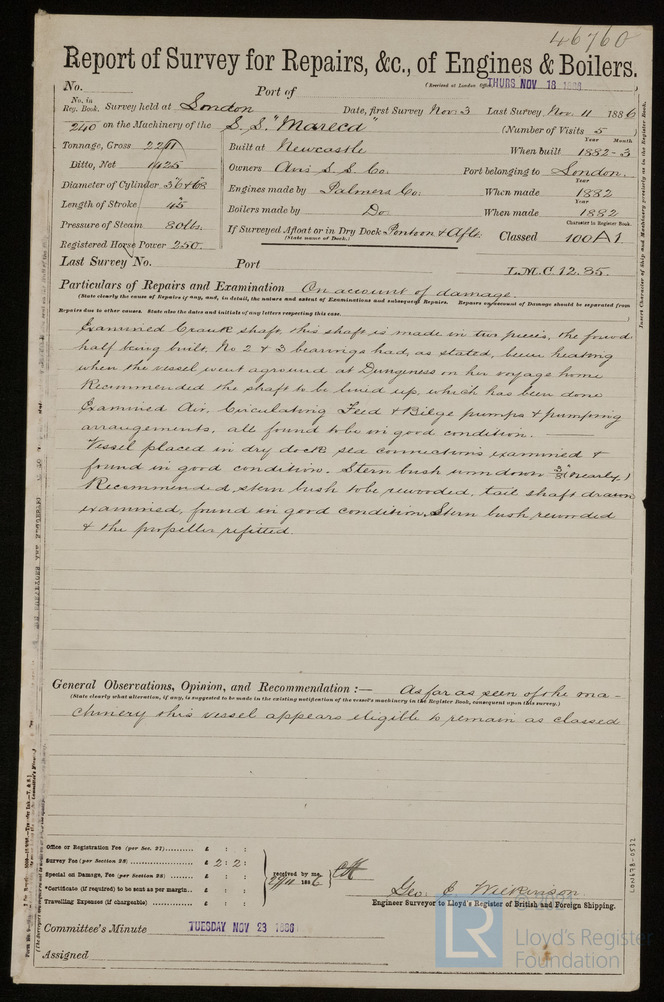 46760
Report of Survey for Repairs, &c., of Engines & Boilers.
(Received at London Office THURS NOV 18 1886
No. Port of
No. in Reg. Book. Survey held at London Date, first Survey Nov: 3 Last Survey Nov. 11 1886
240 on the Machinery of the S. S. "Mareca" (Number of Visits 5)
Tonnage, Gross 2211 Built at Newcastle When built 1882-3 Year Month
Ditto, Net 1425 Owners S. S. Co. Port belonging to London.
Diameter of Cylinder 36 & 68 Engines made by Palmers Co: When made 1882 Year
Length of Stroke 45 Boilers made by Do. When made 1882 Year
Pressure of Steam 80lbs. If Surveyed Afloat or in Dry Dock Pontoon & Aflt. (State name of Dock.) Classed 100A1 Character in Register Book.
Registered Horse Power 250.
Last Survey No. Port L.M.C. 12.85.
Particulars of Repairs and Examination On account of damage.
(State clearly the cause of Repairs if any, and, in detail, the nature and extent of Examinations and subsequent Repairs. Repairs on account of Damage should be separated from
Repairs due to other causes. State also the dates and initials of any letters respecting this case.
Examined Crank shaft, this shaft is made in two pieces, the forwd
half being built, No 2 & 3 bearings had, as stated, been heating
when the vessel went aground at Dungeness on her voyage home
Recommended the shaft to be lined up, which has been done
Examined Air, Circulating Feed & Bilge pumps & pumping
arrangements, all found to be in good condition.
Vessel placed in dry dock sea connections examined &
found in good condition. Stern bush worn down 3/8" (nearly)
Recommended stern bush to be rewooded, tail shaft drawn
examined, found in good condition, Stern bush rewooded
& the propeller refitted.
General Observations, Opinion, and Recommendation :— As far as seen of the ma-
(State clearly what alteration, if any, is suggested to be made in the existing notification of the vessel's machinery in the Register Book, consequent upon this survey.)
chinery this vessel appears eligible to remain as classed
Office or Registration Fee (per Sec. 21) £ : :
Survey Fee (per Section 28) £ 2 : 2 :
Special on Damage, Fee (per Section 28) £ : : received by me,
*Certificate (if required) to be sent as per margin £ : : 1886
Travelling Expenses (if chargeable) £ : :
Geo. E. Wilkinson
Engineer Surveyor to Lloyd's Register of British and Foreign Shipping.
Committee's Minute TUESDAY NOV 23 1886
Assigned
LR
© 2021
Lloyd's Register
Foundation
Insert Character of Ship and Machinery precisely as in the Register Book.
LON878-0532